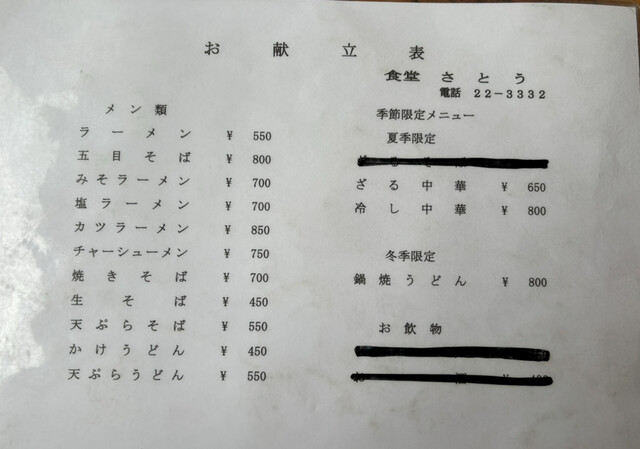 お献立表
食堂 さとう
電話 22-3332
メン類
ラーメン ¥ 550
五目そば ¥ 800
みそラーメン ¥ 700
塩ラーメン ¥ 700
カツラーメン ¥ 850
チャーシューメン ¥ 750
焼きそば ¥ 700
生そば ¥ 450
天ぷらそば ¥ 550
かけうどん ¥ 450
天ぷらうどん ¥ 550
季節限定メニュー
夏季限定
ざる中華 ¥ 650
冷し中華 ¥ 800
冬季限定
鍋焼うどん ¥ 800
お飲物